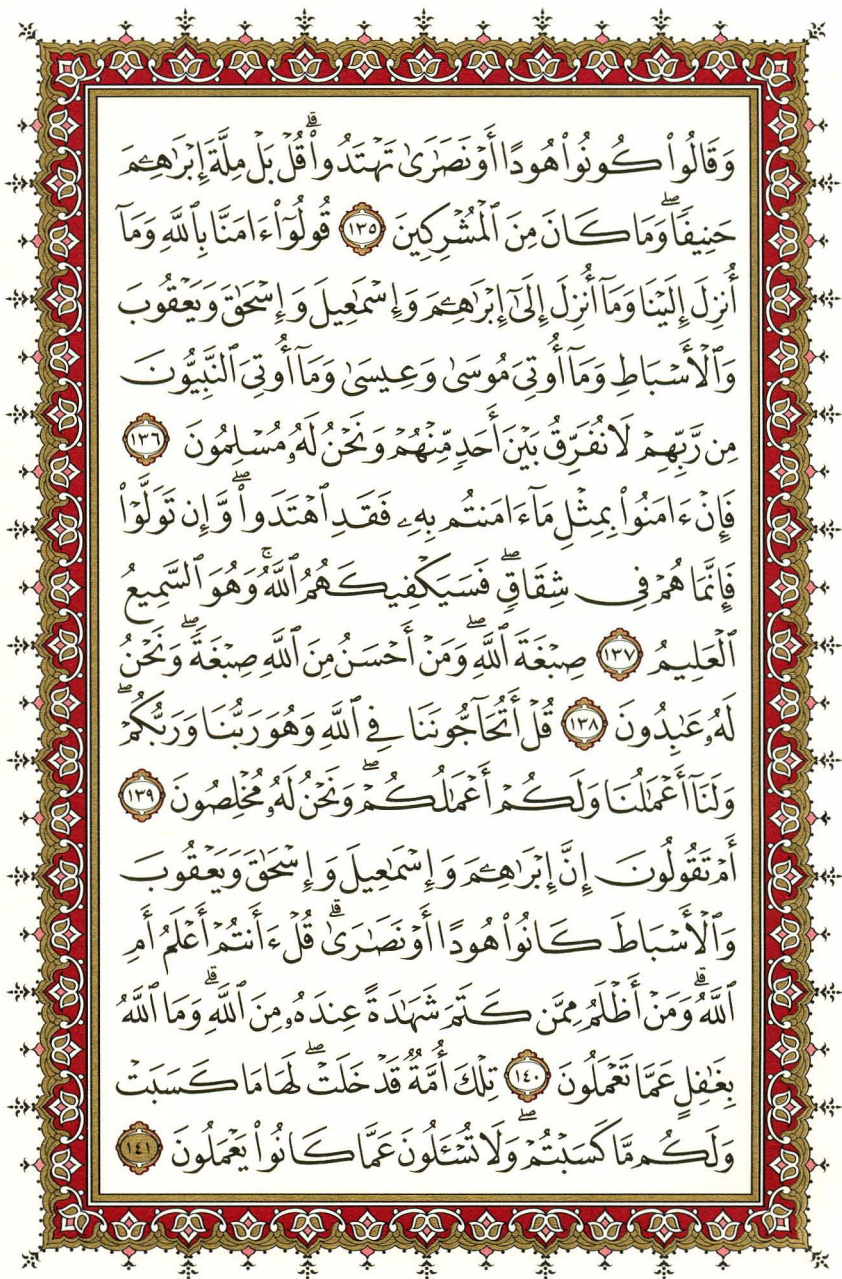 وَقَالُواْ كُونُواْ هُودًا أَوْ نَصَٰرَىٰ تَهْتَدُواْۗ قُلْ بَلْ مِلَّةَ إِبْرَٰهِـۧمَ
حَنِيفًاۖ وَمَا كَانَ مِنَ ٱلْمُشْرِكِينَ ١٣٥ قُولُوٓاْ ءَامَنَّا بِٱللَّهِ وَمَآ
أُنزِلَ إِلَيْنَا وَمَآ أُنزِلَ إِلَىٰٓ إِبْرَٰهِـۧمَ وَإِسْمَٰعِيلَ وَإِسْحَٰقَ وَيَعْقُوبَ
وَٱلْأَسْبَاطِ وَمَآ أُوتِىَ مُوسَىٰ وَعِيسَىٰ وَمَآ أُوتِىَ ٱلنَّبِيُّونَ
مِن رَّبِّهِمْ لَا نُفَرِّقُ بَيْنَ أَحَدٍ مِّنْهُمْ وَنَحْنُ لَهُۥ مُسْلِمُونَ ١٣٦
فَإِنْ ءَامَنُواْ بِمِثْلِ مَآ ءَامَنتُم بِهِۦ فَقَدِ ٱهْتَدَواْۖ وَّإِن تَوَلَّوْاْ
فَإِنَّمَا هُمْ فِى شِقَاقٍۖ فَسَيَكْفِيكَهُمُ ٱللَّهُۚ وَهُوَ ٱلسَّمِيعُ
ٱلْعَلِيمُ ١٣٧ صِبْغَةَ ٱللَّهِۖ وَمَنْ أَحْسَنُ مِنَ ٱللَّهِ صِبْغَةًۖ وَنَحْنُ
لَهُۥ عَٰبِدُونَ ١٣٨ قُلْ أَتُحَآجُّونَنَا فِى ٱللَّهِ وَهُوَ رَبُّنَا وَرَبُّكُمْۖ
وَلَنَآ أَعْمَٰلُنَا وَلَكُمْ أَعْمَٰلُكُمْۖ وَنَحْنُ لَهُۥ مُخْلِصُونَ ١٣٩
أَمْ تَقُولُونَ إِنَّ إِبْرَٰهِـۧمَ وَإِسْمَٰعِيلَ وَإِسْحَٰقَ وَيَعْقُوبَ
وَٱلْأَسْبَاطَ كَانُواْ هُودًا أَوْ نَصَٰرَىٰۗ قُلْ ءَأَنتُمْ أَعْلَمُ أَمِ
ٱللَّهُۗ وَمَنْ أَظْلَمُ مِمَّن كَتَمَ شَهَٰدَةً عِندَهُۥ مِنَ ٱللَّهِۗ وَمَا ٱللَّهُ
بِغَٰفِلٍ عَمَّا تَعْمَلُونَ ١٤٠ تِلْكَ أُمَّةٌ قَدْ خَلَتْۖ لَهَا مَا كَسَبَتْ
وَلَكُم مَّا كَسَبْتُمْۖ وَلَا تُسْـَٔلُونَ عَمَّا كَانُواْ يَعْمَلُونَ ١٤١